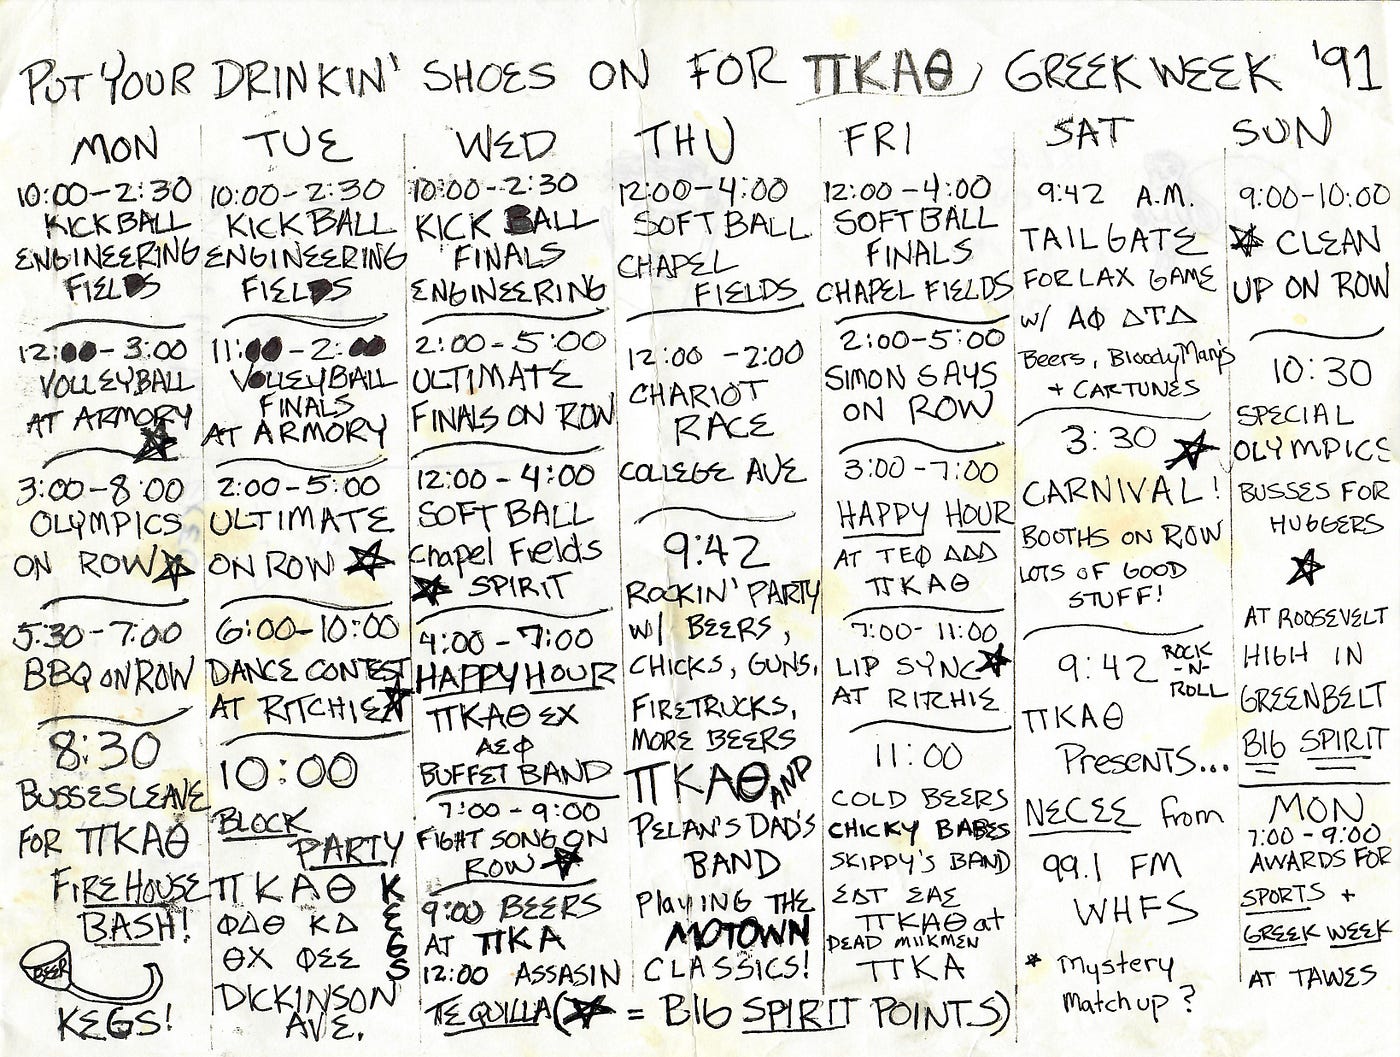 PUT YOUR DRINKIN' SHOES ON FOR ΠΚΑΘ, GREEK WEEK '91
MON
10:00-2:30
KICKBALL
ENGINEERING
FIELDS
12:00-3:00
VOLLEYBALL
AT ARMORY
★
3:00-8:00
OLYMPICS
ON ROW★
5:30-7:00
BBQ ON ROW
8:30
BUSSES LEAVE
FOR ΠΚΑΘ
FIREHOUSE
BASH!
BEER
KEGS!
TUE
10:00-2:30
KICKBALL
ENGINEERING
FIELDS
11:00-2:00
VOLLEYBALL
FINALS
AT ARMORY
2:00-5:00
ULTIMATE
ON ROW ★
6:00-10:00
DANCE CONTEST
AT RITCHIE★
10:00
BLOCK
PARTY
ΠΚΑΘ
ΦΔΘ ΚΔ
ΘΧ ΦΣΣ
KEGS
DICKINSON
AVE.
WED
10:00-2:30
KICK BALL
FINALS
ENGINEERING
2:00-5:00
ULTIMATE
FINALS ON ROW
12:00-4:00
SOFTBALL
Chapel Fields
★ SPIRIT
4:00-7:00
HAPPY HOUR
ΠΚΑΘ ΣΧ
ΑΣΦ
BUFFET BAND
7:00-9:00
FIGHT SONG ON
ROW ★
9:00 BEERS
AT ΠΚΑ
12:00 ASSASIN
TEQUILLA
(★ = BIG SPIRIT POINTS)
THU
12:00-4:00
SOFTBALL
CHAPEL
FIELDS
12:00-2:00
CHARIOT
RACE
COLLEGE AVE
9:42
ROCKIN' PARTY
W/ BEERS,
CHICKS, GUNS,
FIRETRUCKS,
MORE BEERS
ΠΚΑΘ AND
PELAN'S DAD'S
BAND
Playing THE
MOTOWN
CLASSICS!
FRI
12:00-4:00
SOFTBALL
FINALS
CHAPEL FIELDS
2:00-5:00
SIMON SAYS
ON ROW
3:00-7:00
HAPPY HOUR
AT ΤΕΦ ΔΔΔ
ΠΚΑΘ
7:00-11:00
LIP SYNC★
AT RITCHIE
11:00
COLD BEERS
CHICKY BABES
SKIPPY'S BAND
ΣΔΤ ΣΑΣ
ΠΚΑΘ at
DEAD MILKMEN
ΠΚΑ
SAT
9:42 A.M.
TAILGATE
FOR LAX GAME
W/ ΑΦ ΔΤΔ
Beers, Bloody Mary's
+ CARTUNES
3:30 ★
CARNIVAL!
BOOTHS ON ROW
LOTS OF GOOD
STUFF!
9:42 ROCK
-N-
ROLL
ΠΚΑΘ
Presents...
NECEE from
99.1 FM
WHFS
* Mystery
Matchup?
SUN
9:00-10:00
★ CLEAN
UP ON ROW
10:30
SPECIAL
OLYMPICS
BUSSES FOR
HUGGERS
★
AT ROOSEVELT
HIGH IN
GREENBELT
BIG SPIRIT
MON
7:00-9:00
AWARDS FOR
SPORTS +
GREEK WEEK
AT TAWES